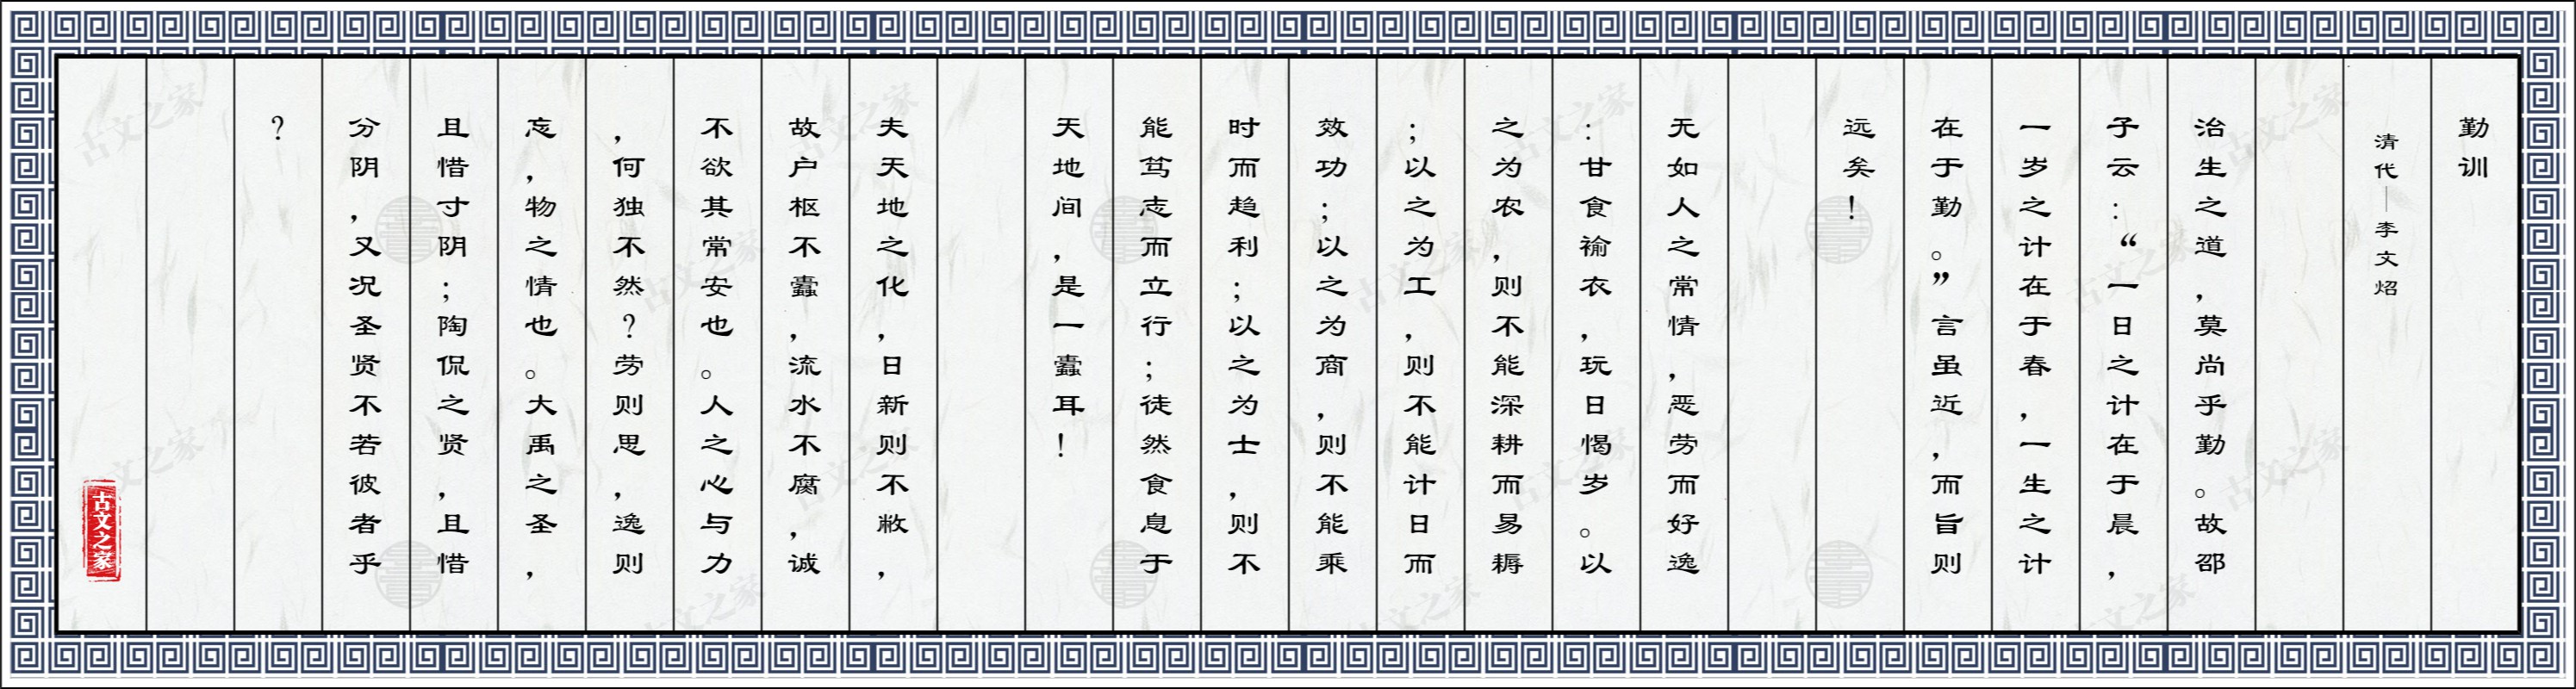 勤训
清代—李文炤
治生之道，莫尚乎勤。故邵
子云：“一日之计在于晨，
一岁之计在于春，一生之计
在于勤。”言虽近，而旨则
远矣！
无如人之常情，恶劳而好逸
：甘食褕衣，玩日愒岁。以
之为农，则不能深耕而易耨
；以之为工，则不能计日而
效功；以之为商，则不能乘
时而趋利；以之为士，则不
能笃志而立行；徒然食息于
天地间，是一蠹耳！
夫天地之化，日新则不敝，
故户枢不蠹，流水不腐，诚
不欲其常安也。人之心与力
，何独不然？劳则思，逸则
忘，物之情也。大禹之圣，
且惜寸阴；陶侃之贤，且惜
分阴，又况圣贤不若彼者乎
？
古文之家